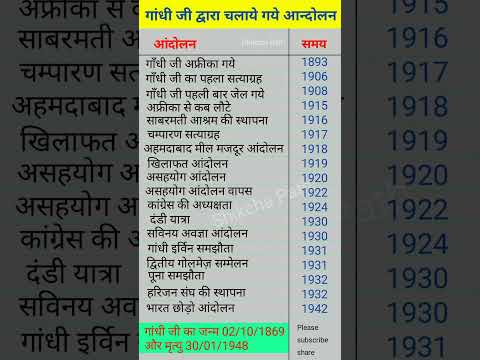 गांधी जी द्वारा चलाये गये आन्दोलन
आंदोलन समय
गाँधी जी अफ्रीका गये 1893
गाँधी जी का पहला सत्याग्रह 1906
गाँधी जी पहली बार जेल गये 1908
अफ्रीका से कब लौटे 1915
साबरमती आश्रम की स्थापना 1916
चम्पारण सत्याग्रह 1917
अहमदाबाद मील मजदूर आंदोलन 1918
खिलाफत आंदोलन 1919
असहयोग आंदोलन 1920
असहयोग आंदोलन वापस 1922
कांग्रेस की अध्यक्षता 1924
दंडी यात्रा 1930
सविनय अवज्ञा आंदोलन 1930
गांधी इर्विन समझौता 1931
द्वितीय गोलमेज़ सम्मेलन 1931
पूना समझौता 1932
हरिजन संघ की स्थापना 1932
भारत छोड़ो आंदोलन 1942
गांधी जी का जन्म 02/10/1869
ओर मृत्यु 30/01/1948
Please
subscribe
share
अफ्रीका से क
साबरमती आ
चम्पारण सत्य
अहमदाबाद म
खिलाफत आं
असहयोग आं
असहयोग आं
कांग्रेस की अ
दंडी यात्रा
सविनय अव
गांधी इर्विन
1915
1916
1917
1918
1919
1920
1922
1924
1930
1930
1931